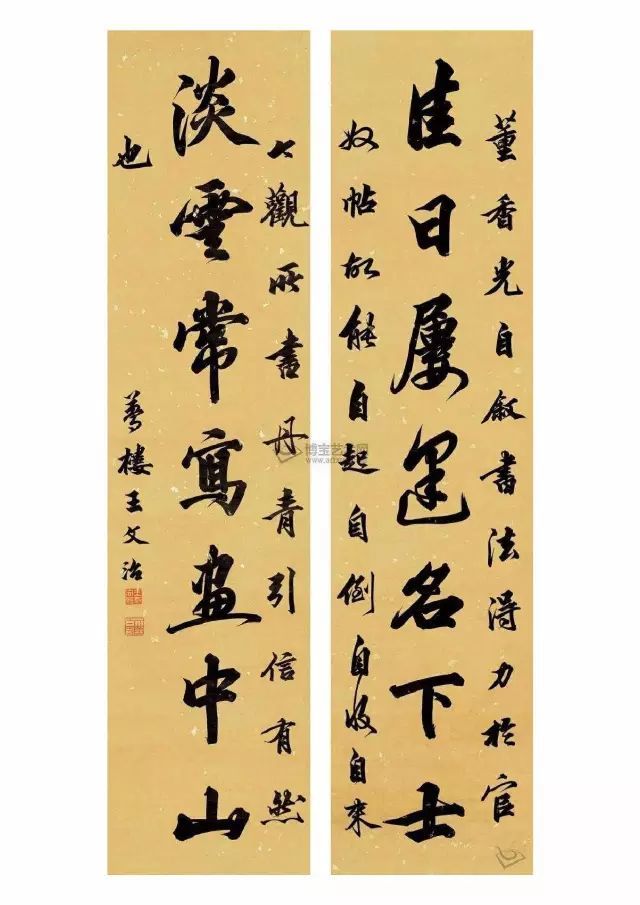 董香光自敘書法得力於官
佳日屢逢名下士
奴帖故能自起自倒自收自束
今觀所書丹青引信有然
淡雲常寫畫中山
也
夢樓王文治